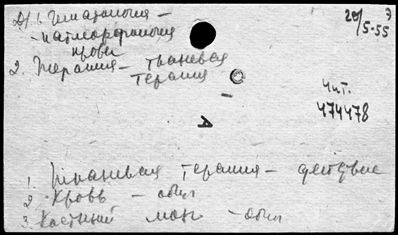 Д/ 1. Гематология —
— патморфология
крови
2. Терапия — тканевая
терапия
29/5-55
Э
Чит.
474478
А
1. Тканевая терапия — действие
2. Кровь —
3. Костный мозг —